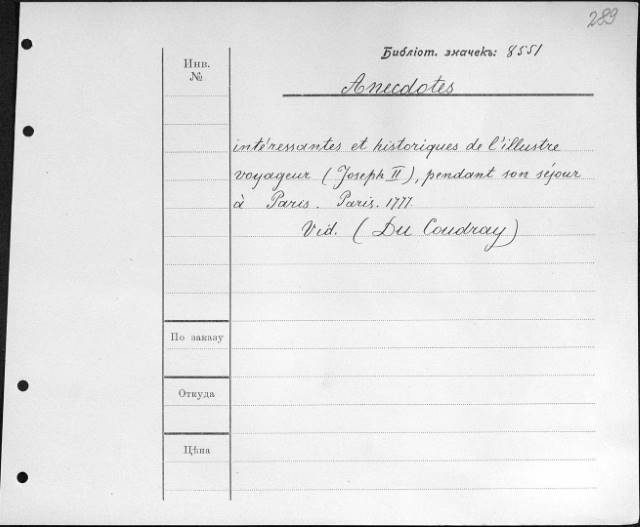 289
Библіот. значекъ: 8551
Инв.
№
Anecdotes
intéressantes et historiques de l'illustre
voyageur (Joseph II), pendant son séjour
à Paris. Paris. 1777.
Vid. (Du Coudray)
По заказу
Откуда
Цѣна